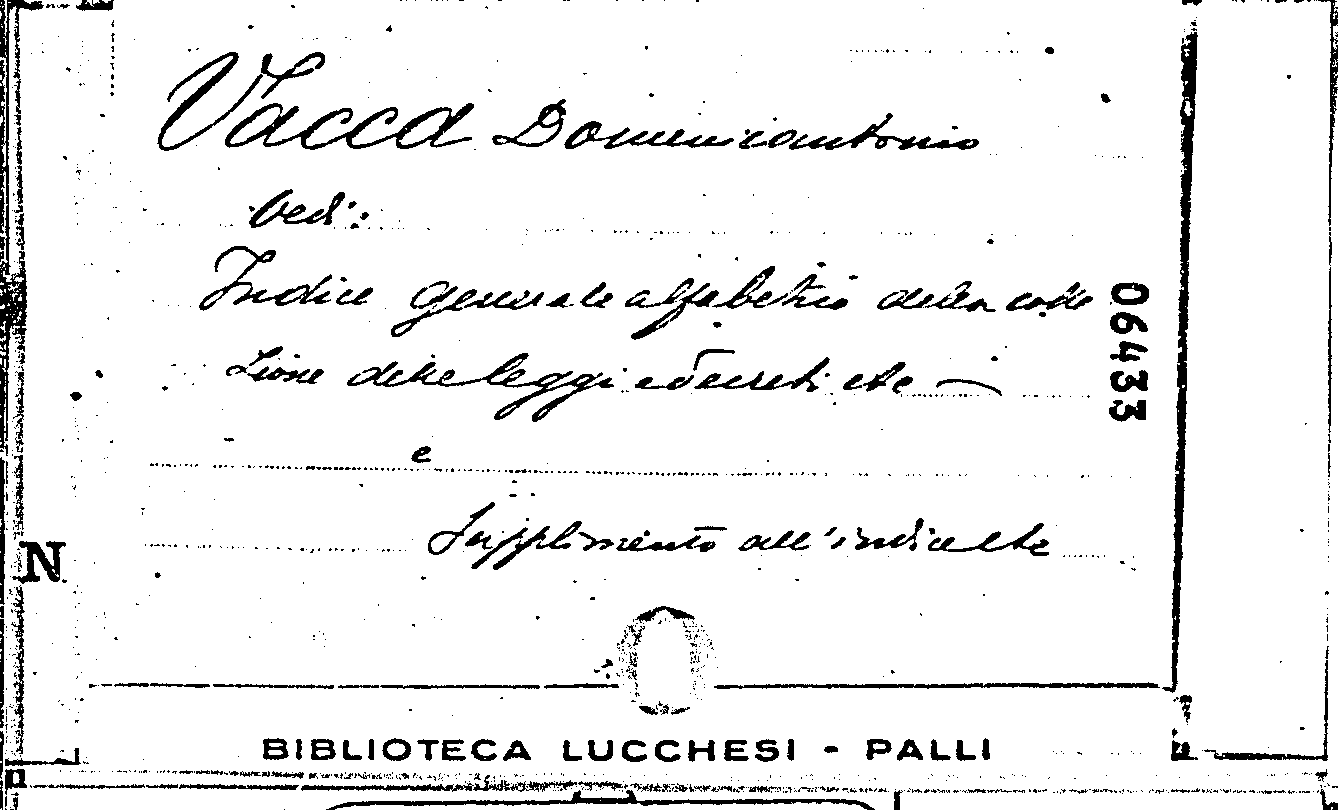 Vacca Domenicantonio
Vedi:
Indice generale alfabetico della colle
zione delle leggi e decreti etc —
e
Supplimento all'indice etc
06433
N
BIBLIOTECA LUCCHESI - PALLI